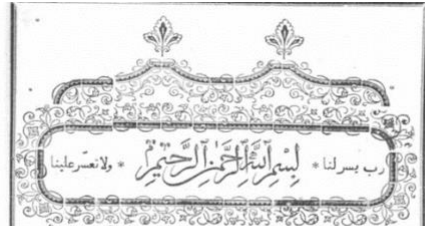 رب يسر لنا * بِسْمِ اللّٰهِ الرَّحْمٰنِ الرَّحِيْمِ * ولا تعسّر علينا